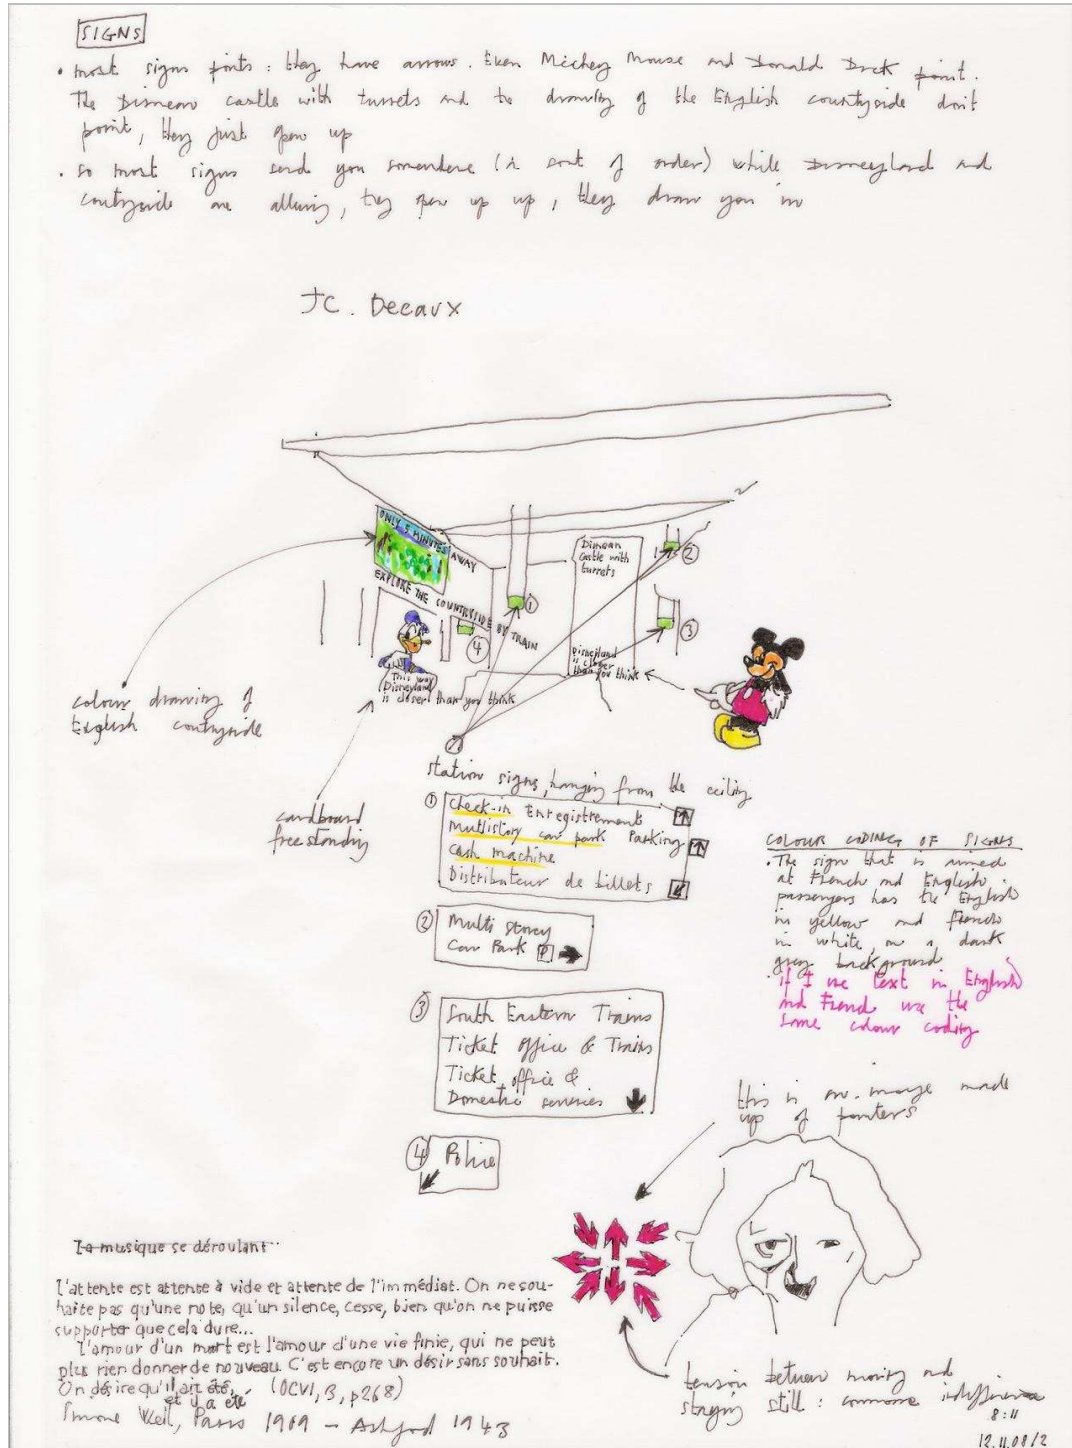 SIGNS
• most signs points : they have arrows. Even Mickey Mouse and Donald Duck point.
The Disnean castle with turrets and the drawing of the English countryside don't
point, they just open up
• so most signs send you somewhere (a sort of order) while Disneyland and
countryside are alluring, they open up up, they draw you in
JC. Decaux
ONLY 5 MINUTES AWAY
EXPLORE THE COUNTRYSIDE BY TRAIN
Disnean
Castle with
turrets
2
1
3
4
This way
Disneyland
is closer than you think
Disneyland
is closer
than you think
colour drawing of
English countryside
cardboard
free standing
station signs, hanging from the ceiling
1 Check-in Enregistrement
Multistory car park Parking
Cash machine
Distributeur de billets
2 Multi Storey
Car Park P
3 South Eastern Trains
Ticket office & Trains
Ticket office &
Domestic services
4 Police
COLOUR CODING OF SIGNS
• The sign that is aimed
at French and English
passengers has the English
in yellow and French
in white, on a dark
grey background
• if I use text in English
and French use the
same colour coding
this is an image made
up of pointers
La musique se déroulant..
l'attente est attente à vide et attente de l'immédiat. On ne sou-
haite pas qu'une note, qu'un silence, cesse, bien qu'on ne puisse
supporter que cela dure...
l'amour d'un mort est l'amour d'une vie finie, qui ne peut
plus rien donner de nouveau. C'est encore un désir sans souhait.
On désire qu'il ait été, (OCVI, 3, p268)
et il a été
Simone Weil, Paris 1909 – Ashford 1943
tension between moving and
staying still : indifference
8:11
12.11.08/2